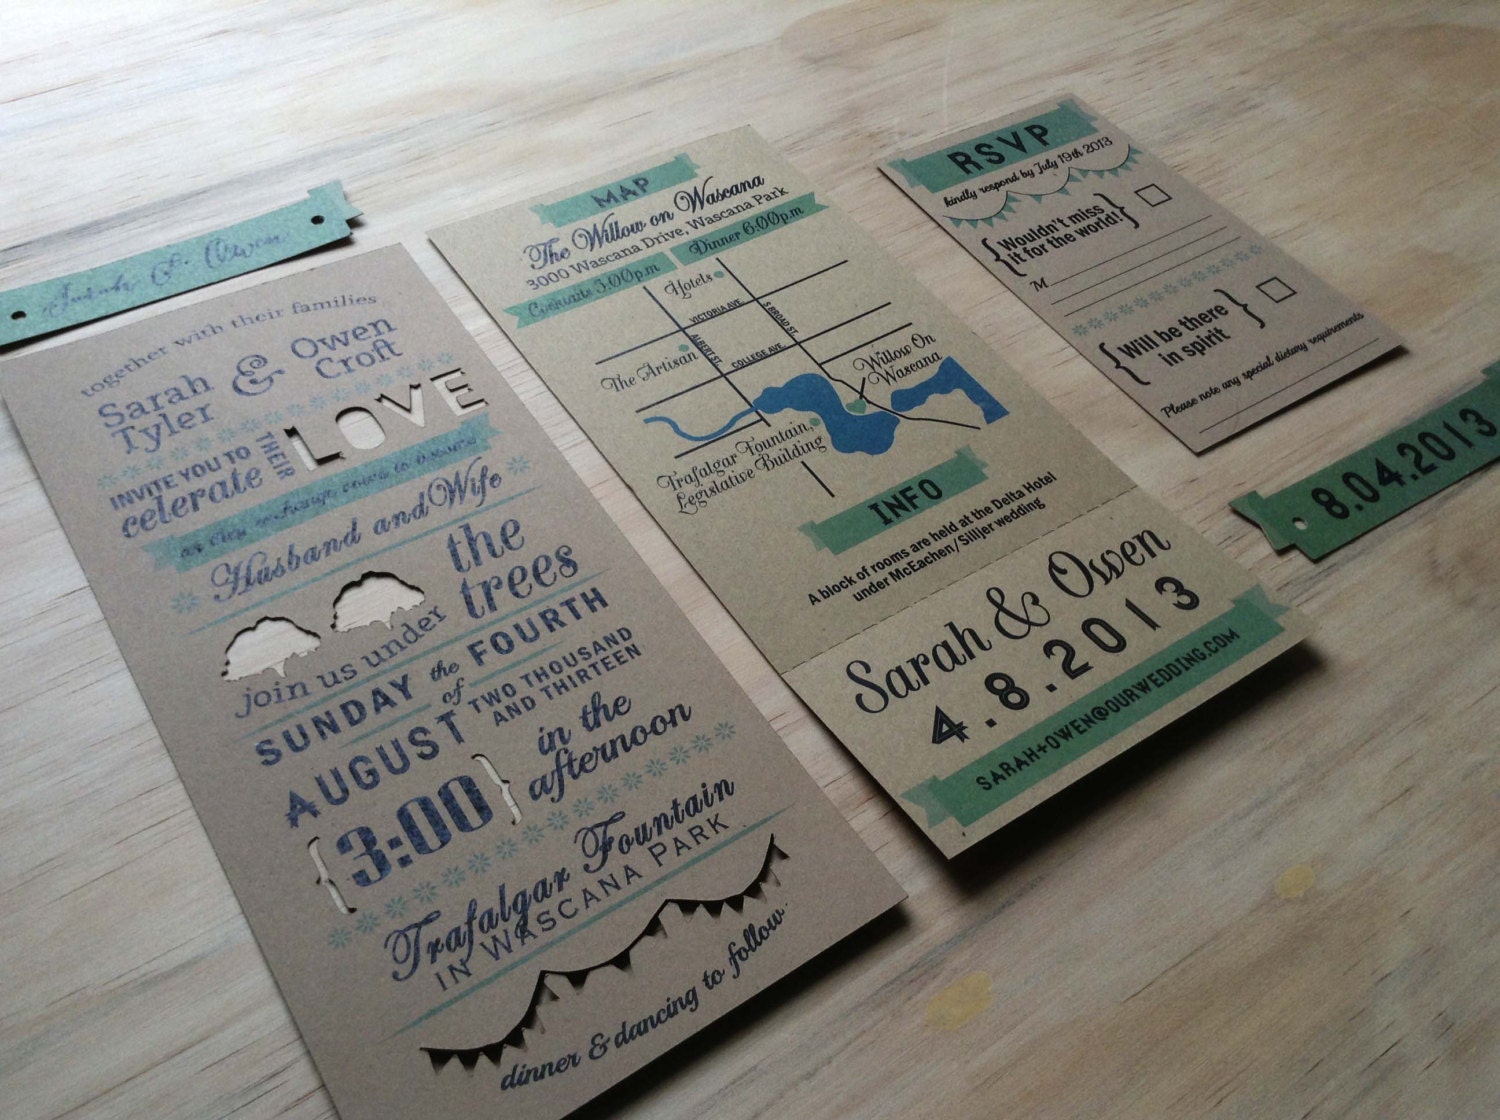 Sarah & Owen
together with their families
Sarah Tyler & Owen Croft
INVITE YOU TO
celerate
THEIR
LOVE
as they exchange vows to become
Husband and Wife
join us under
the trees
SUNDAY the FOURTH
of
AUGUST TWO THOUSAND
AND THIRTEEN
{3:00} in the
afternoon
Trafalgar Fountain
IN WASCANA PARK
dinner & dancing to follow.
MAP
The Willow on Wascana
3000 Wascana Drive, Wascana Park
Dinner 6:00p.m
Hotels
VICTORIA AVE.
S BROAD ST.
ALBERT ST.
COLLEGE AVE.
The Artisan
Willow On
Wascana
Trafalgar Fountain,
Legislative Building
INFO
A block of rooms are held at the Delta Hotel
under McEachen/Silljer wedding
Sarah & Owen
4.8.2013
SARAH+OWEN@OURWEDDING.COM
RSVP
kindly respond by July 19th 2013
{Wouldn't miss
it for the world!}
M
{Will be there
in spirit}
Please note any special dietary requirements
8.04.2013